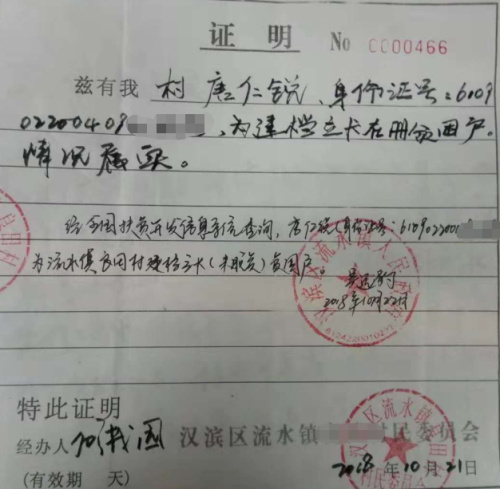 证 明 No 0000466
兹有我 村 唐仁锐,身份证号:6109
02200409 ,为建档立卡在册贫困户。
情况属实。
经全国扶贫开发信息系统查询,唐仁锐(身份证号:6109022004
为流水镇 村建档立卡(未脱贫)贫困户。
2018年10月22日
汉滨区流水镇人民政府
特此证明
经办人 汉滨区流水镇 村民委员会
(有效期 天) 2018年10月21日